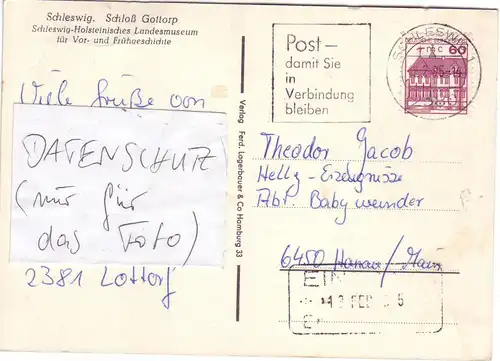 Schleswig. Schloß Gottorp
Schleswig-Holsteinisches Landesmuseum
für Vor- und Frühgeschichte
Viele Grüße von
DATENSCHUTZ
(nur für
das Foto)
2381 Lottorf
Verlag Ferd. Lagerbauer & Co Hamburg 33
Post-
damit Sie
in
Verbindung
bleiben
SCHLESWIG 1
60
Theodor Jacob
Hellz-Erzeugnisse
Abt. Babywunder
6450 Hanau/Main
EIN
13 FEB 5